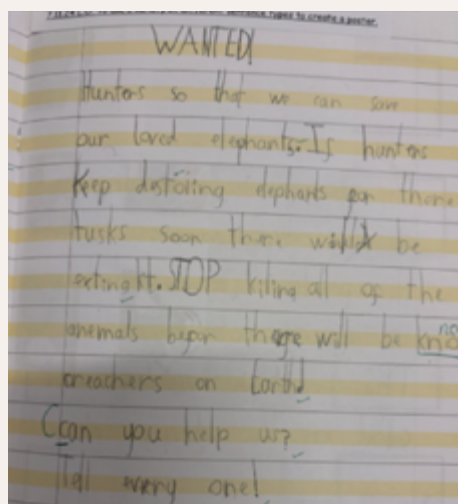 to create a poster.
WANTED!
Hunters so that we can save
our loved elephants. If hunters
Keep elephants for there
tusks soon there will be
STOP killing all of the
anemals befor there will be kno no
creachers on Earth!
Ccan you help us?
Tell every one!